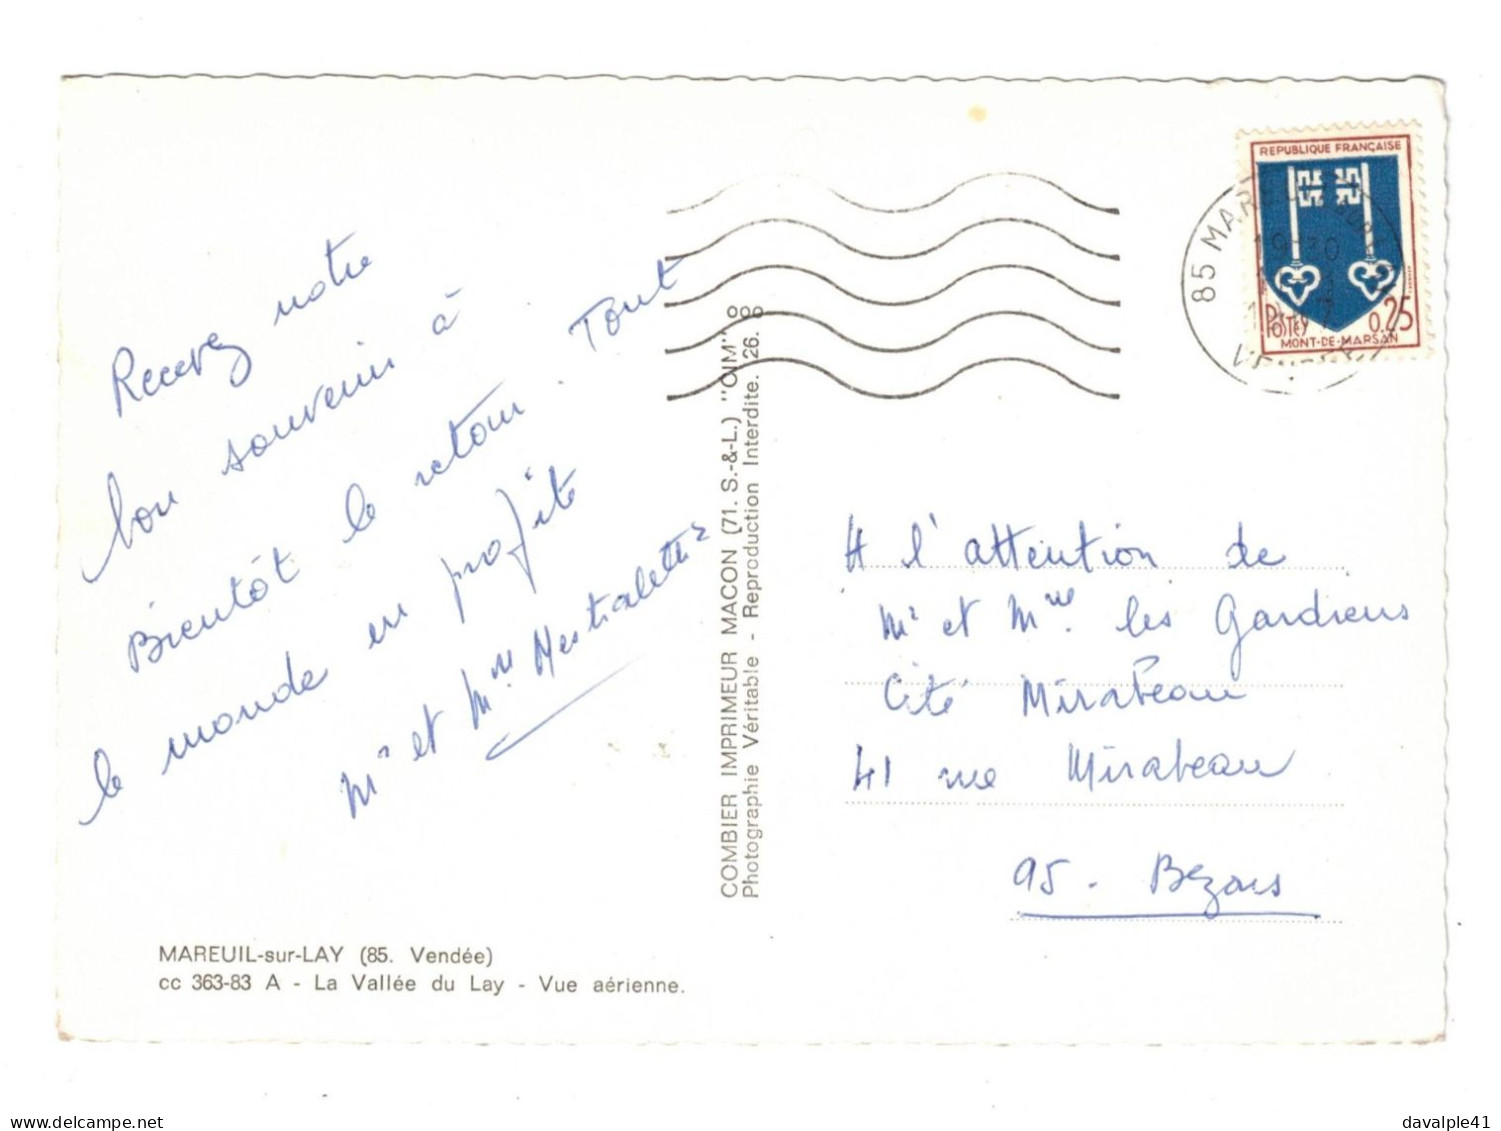 Recevez notre
bon souvenir à
Bientôt le retour. Tout
le monde en profite
Mr et Mme
MAREUIL-sur-LAY (85. Vendée)
cc 363-83 A - La Vallée du Lay - Vue aérienne.
COMBIER IMPRIMEUR MACON (71. S.-&-L.) "CIM"
Photographie Véritable - Reproduction Interdite. 26. 8
REPUBLIQUE FRANÇAISE
POSTES 0,25
MONT-DE-MARSAN
85
A l'attention de
Mr et Mme les Gardiens
Cité Mirabeau
41 rue Mirabeau
95 - Bezons
www.delcampe.net
davalple41